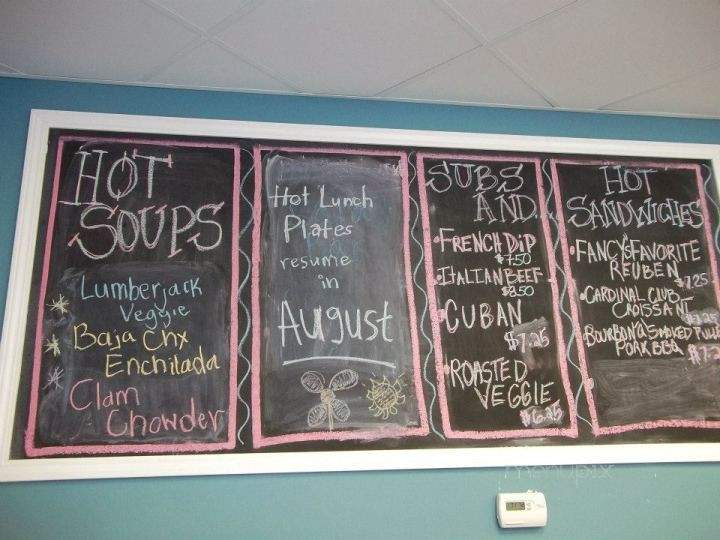 HOT
SOUPS
Lumberjack
Veggie
Baja Chx
Enchilada
Clam
Chowder
Hot Lunch
Plates
resume
in
August
SUBS
AND...
•FRENCH DIP
$7.50
•ITALIAN BEEF
$8.50
•CUBAN
$7.25
•ROASTED
VEGGIE
$6.25
HOT
SANDWICHES
•FANCY'S FAVORITE
REUBEN
$7.25
•CARDINAL CLUB
CROISSANT
•BOURBON Q SMOKED PULL
PORK BBQ